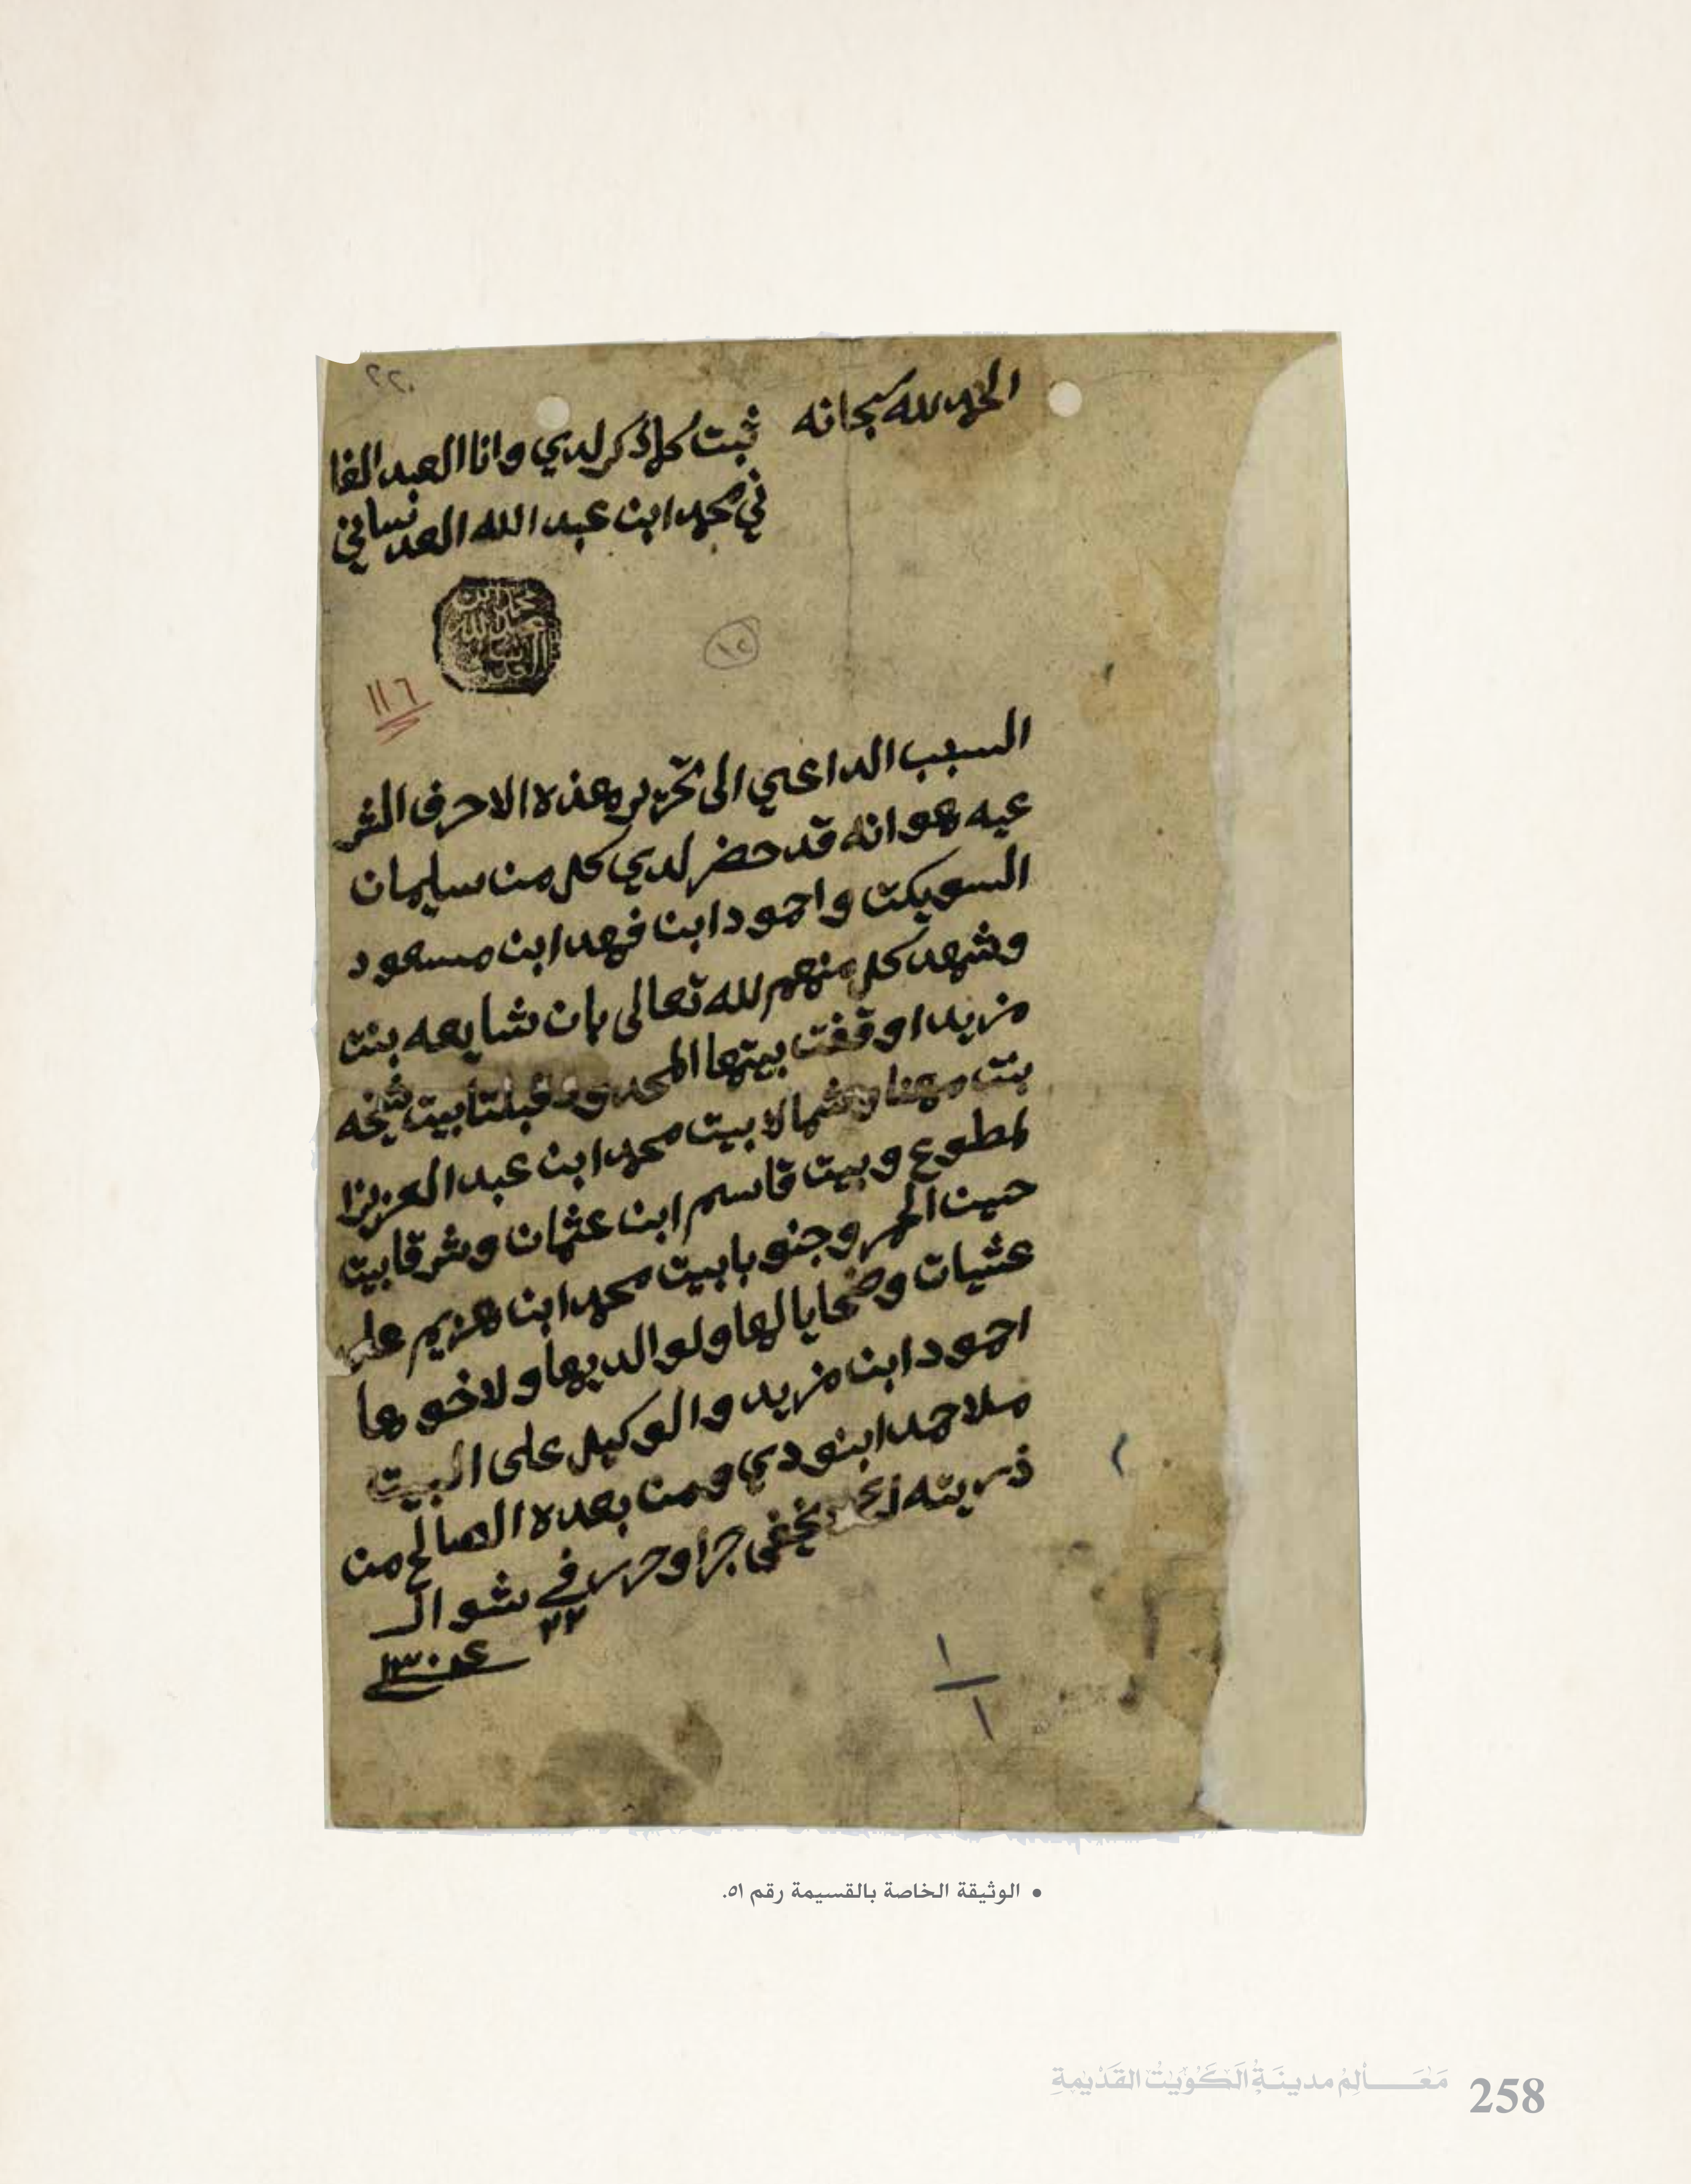 ٢٢٠
الحمد لله سبحانه
ثبت كلما ذكر لدي وانا العبد الفا
ني محمد ابن عبد الله العدساني
محمد بن
عبد الله
العدساني
١٢
١١٦
السبب الداعي الى تحرير هذه الاحرف الشر
عيه هو انه قد حضر لدي كل من سليمان
السويكت واحمود ابن فهد ابن مسعود
وشهد كل منهم لله تعالى بان شايعه بنت
مزيد اوقفت بيتها المحدود قبلتا بيت شيخه
بنت مهنا وشمالا بيت محمد ابن عبد العزيز ا
لمطوع وبيت قاسم ابن عثمان وشرقا بيت
حسين الحمر وجنوبا بيت محمد ابن هزيم على
عشيات وضحايا لها ولوالديها ولاخوها
احمود ابن مزيد والوكيل على البيت
ملا حمد ابنودي ومن بعده الصالح من
ذريته يخفى جرا وحرر في شوال
٢٢
سنة ١٣٠
١
١
• الوثيقة الخاصة بالقسيمة رقم ٥١.
مَعَالِمُ مدينَةِ الكُوَيْتِ القَدِيْمَةِ 258